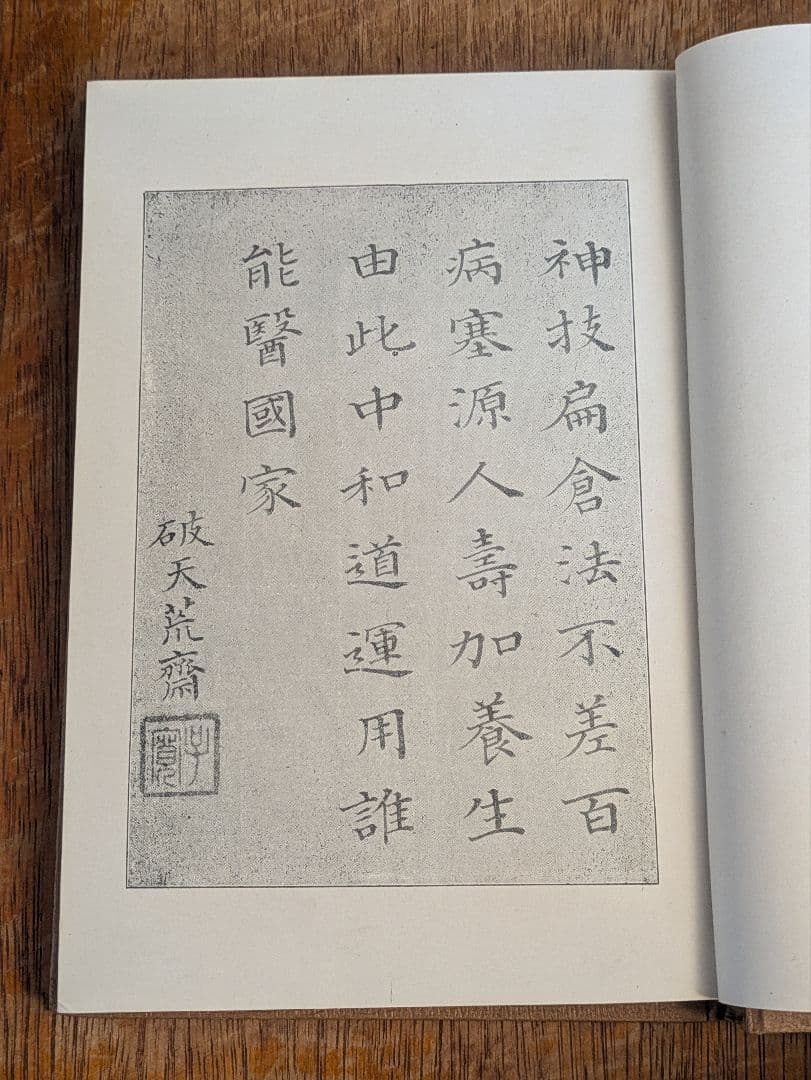 神技扁倉法不差百
病塞源人壽加養生
由此中和道運用誰
能醫國家
破天荒齋
子寬